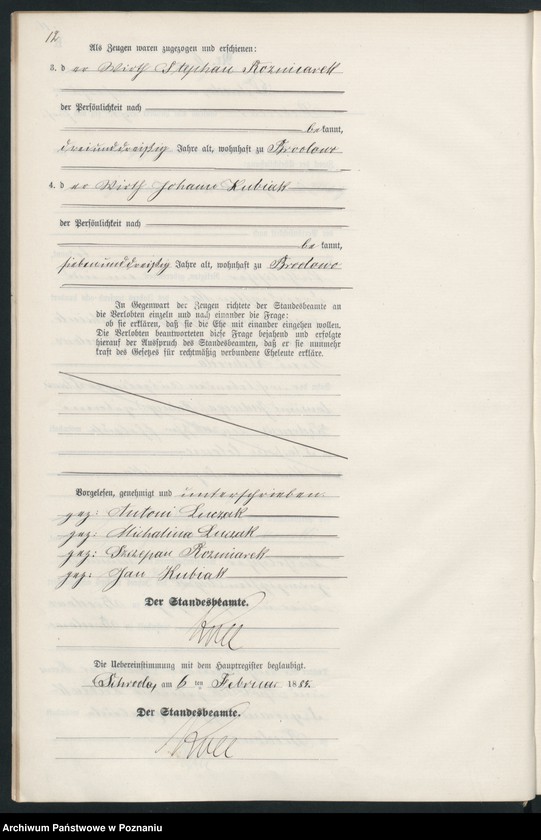 12
Als Zeugen waren zugezogen und erschienen:
3. d er Wirth Stephan Kozmiarek
der Persönlichkeit nach
be kannt,
dreiunddreißig Jahre alt, wohnhaft zu Brodowo
4. d er Wirth Johann Kubiak
der Persönlichkeit nach
be kannt,
siebenunddreißig Jahre alt, wohnhaft zu Brodowo
In Gegenwart der Zeugen richtete der Standesbeamte an
die Verlobten einzeln und nach einander die Frage:
ob sie erklären, daß sie die Ehe mit einander eingehen wollen.
Die Verlobten beantworteten diese Frage bejahend und erfolgte
hierauf der Ausspruch des Standesbeamten, daß er sie nunmehr
kraft des Gesetzes für rechtmäßig verbundene Eheleute erkläre.
Vorgelesen, genehmigt und unterschrieben:
gez: Antoni Luczak
gez: Michalina Luczak
gez: Szczepan Kozmiarek
gez: Jan Kubiak
Der Standesbeamte.
Die Uebereinstimmung mit dem Hauptregister beglaubigt.
Schroda, am 6 ten Februar 188
Der Standesbeamte.
Archiwum Państwowe w Poznaniu